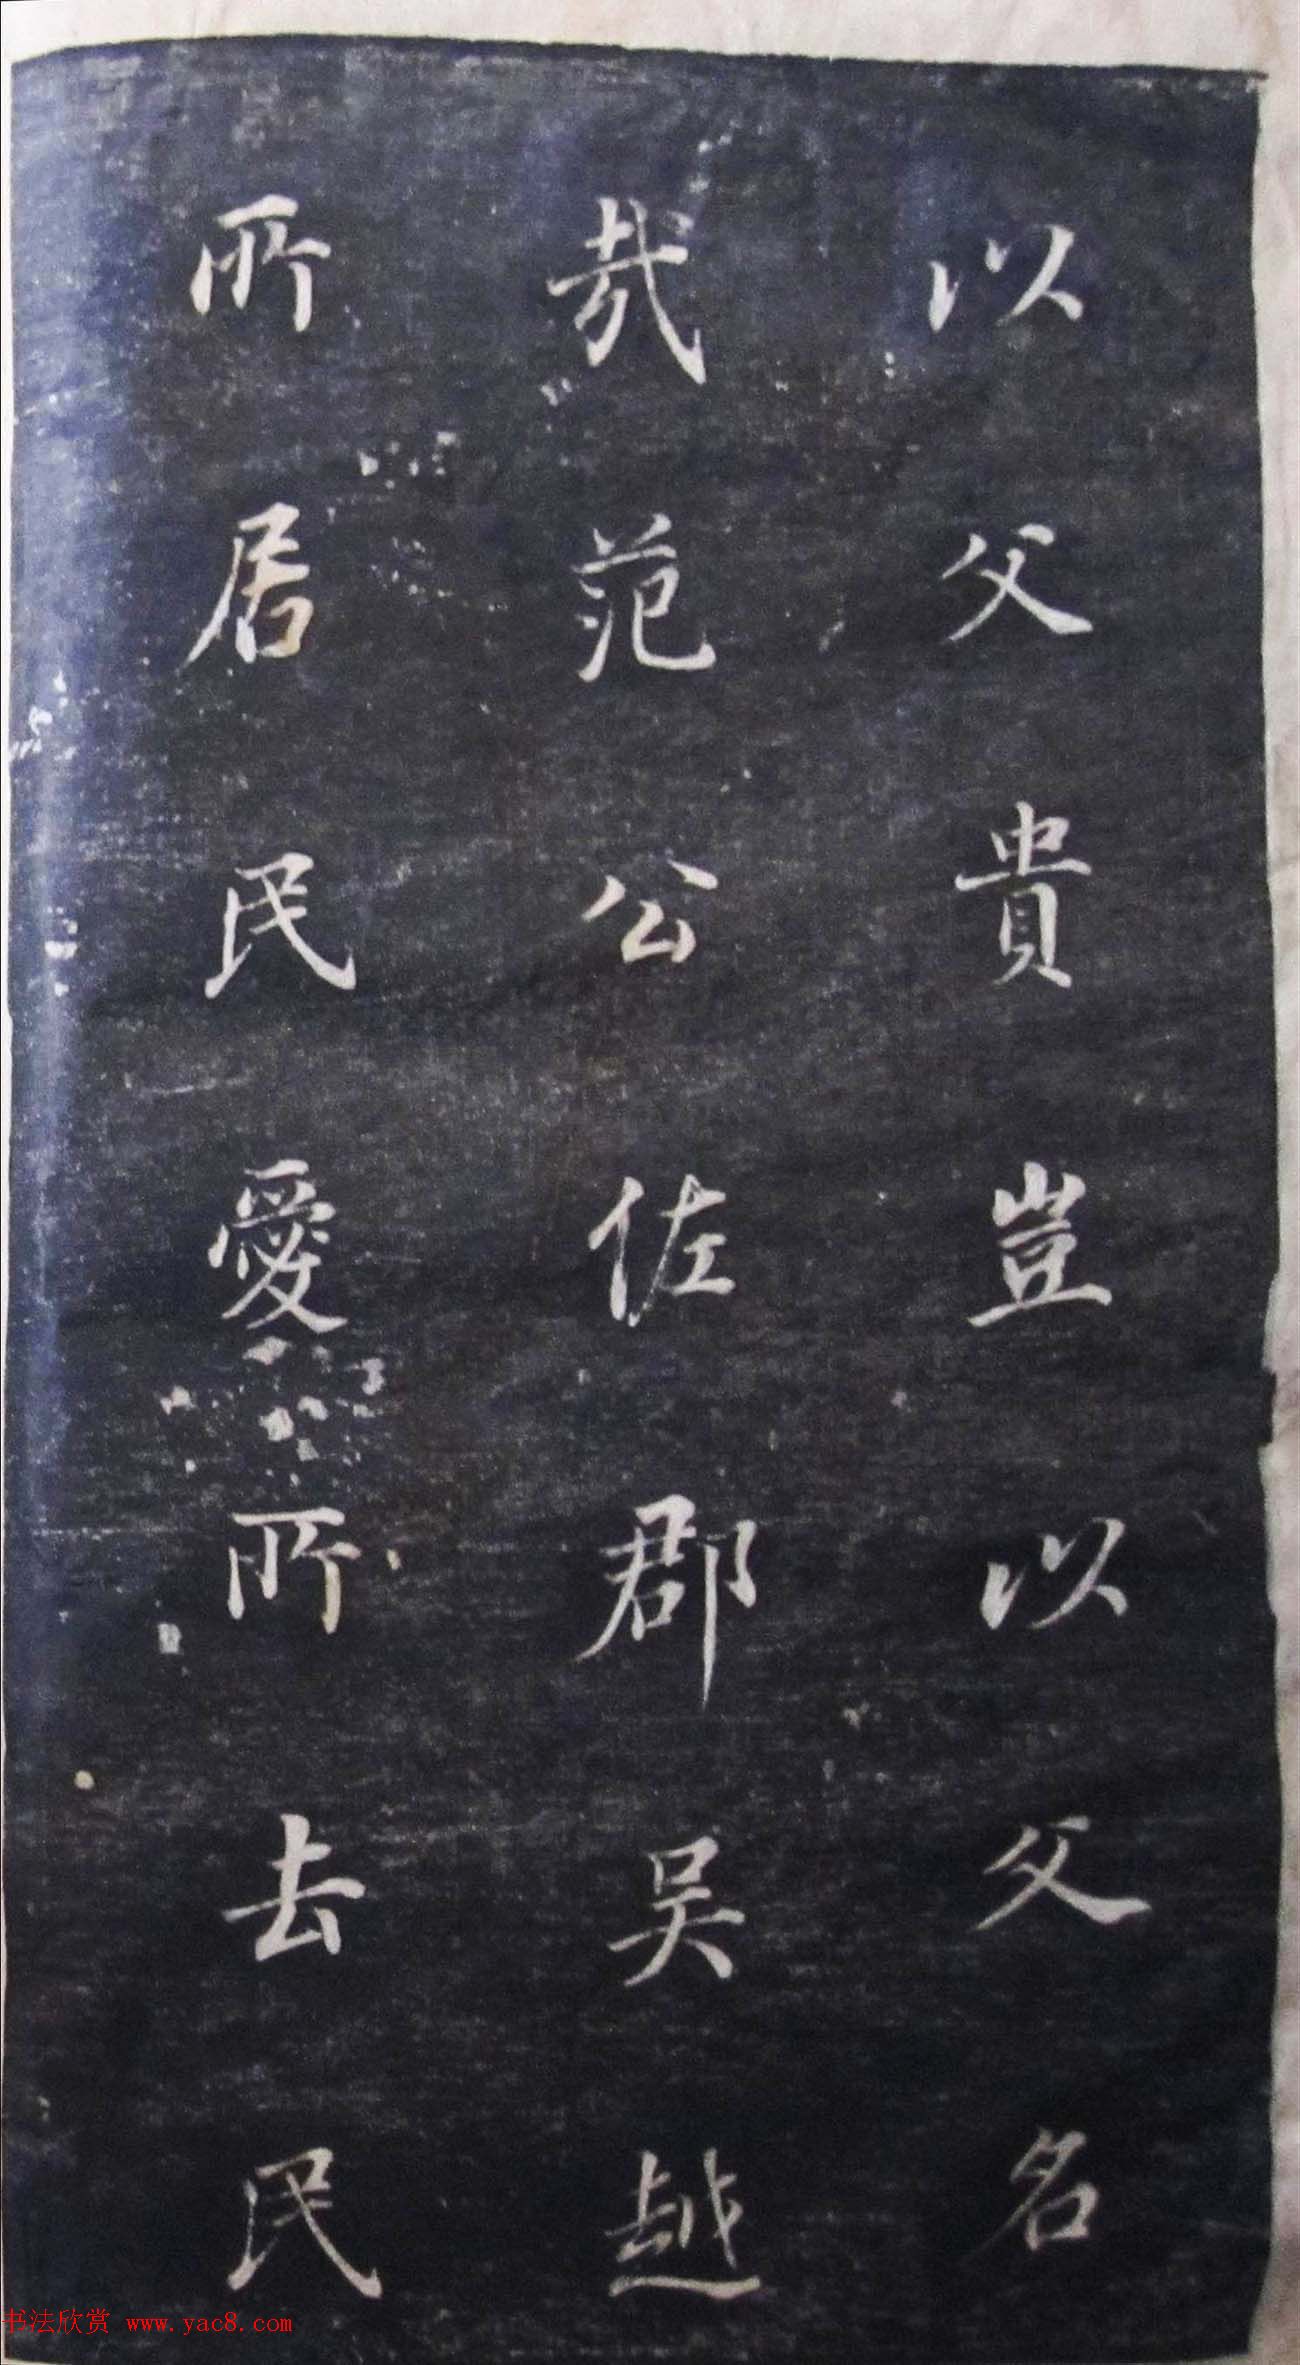 以父貴豈以父名
哉范公佐郡吴越
所居民愛所去民
书法欣赏 www.yac8.com